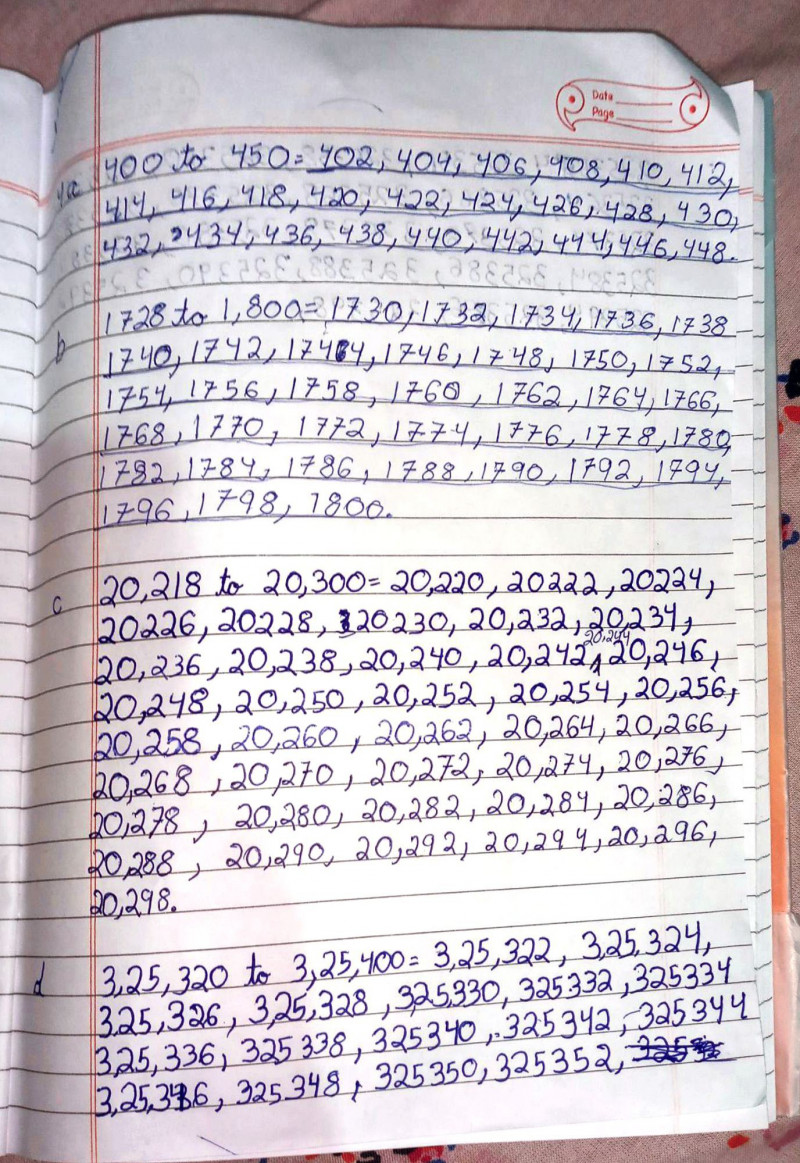 Date
Page
4a 400 to 450= 402, 404, 406, 408, 410, 412,
414, 416, 418, 420, 422, 424, 426, 428, 430,
432, 434, 436, 438, 440, 442, 444, 446, 448.
b 1728 to 1,800= 1730, 1732, 1734, 1736, 1738
1740, 1742, 1744, 1746, 1748, 1750, 1752,
1754, 1756, 1758, 1760, 1762, 1764, 1766,
1768, 1770, 1772, 1774, 1776, 1778, 1780,
1782, 1784, 1786, 1788, 1790, 1792, 1794,
1796, 1798, 1800.
c 20,218 to 20,300= 20,220, 20222, 20224,
20226, 20228, 20230, 20,232, 20,234,
20,236, 20,238, 20,240, 20,242, 20,244 20,246,
20,248, 20,250, 20,252, 20,254, 20,256,
20,258, 20,260, 20,262, 20,264, 20,266,
20,268, 20,270, 20,272, 20,274, 20,276,
20,278, 20,280, 20,282, 20,284, 20,286,
20,288, 20,290, 20,292, 20,294, 20,296,
20,298.
d 3,25,320 to 3,25,400= 3,25,322, 3,25,324,
3,25,326, 3,25,328, 3,25,330, 325332, 325334
3,25,336, 325338, 325340, 325342, 325344
3,25,346, 325348, 325350, 325352,